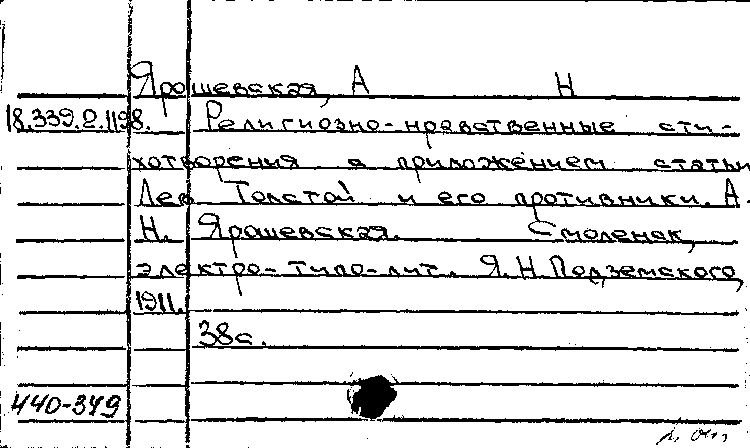 Ярошевская, А Н
18.339.2.1198. Религиозно-нравственные сти-
хотворения с приложением статьи
Лев Толстой и его противники. А.
Н. Ярошевская. Смоленск,
электро-типо-лит. Я.Н.Подземского,
1911.
38с.
440-349